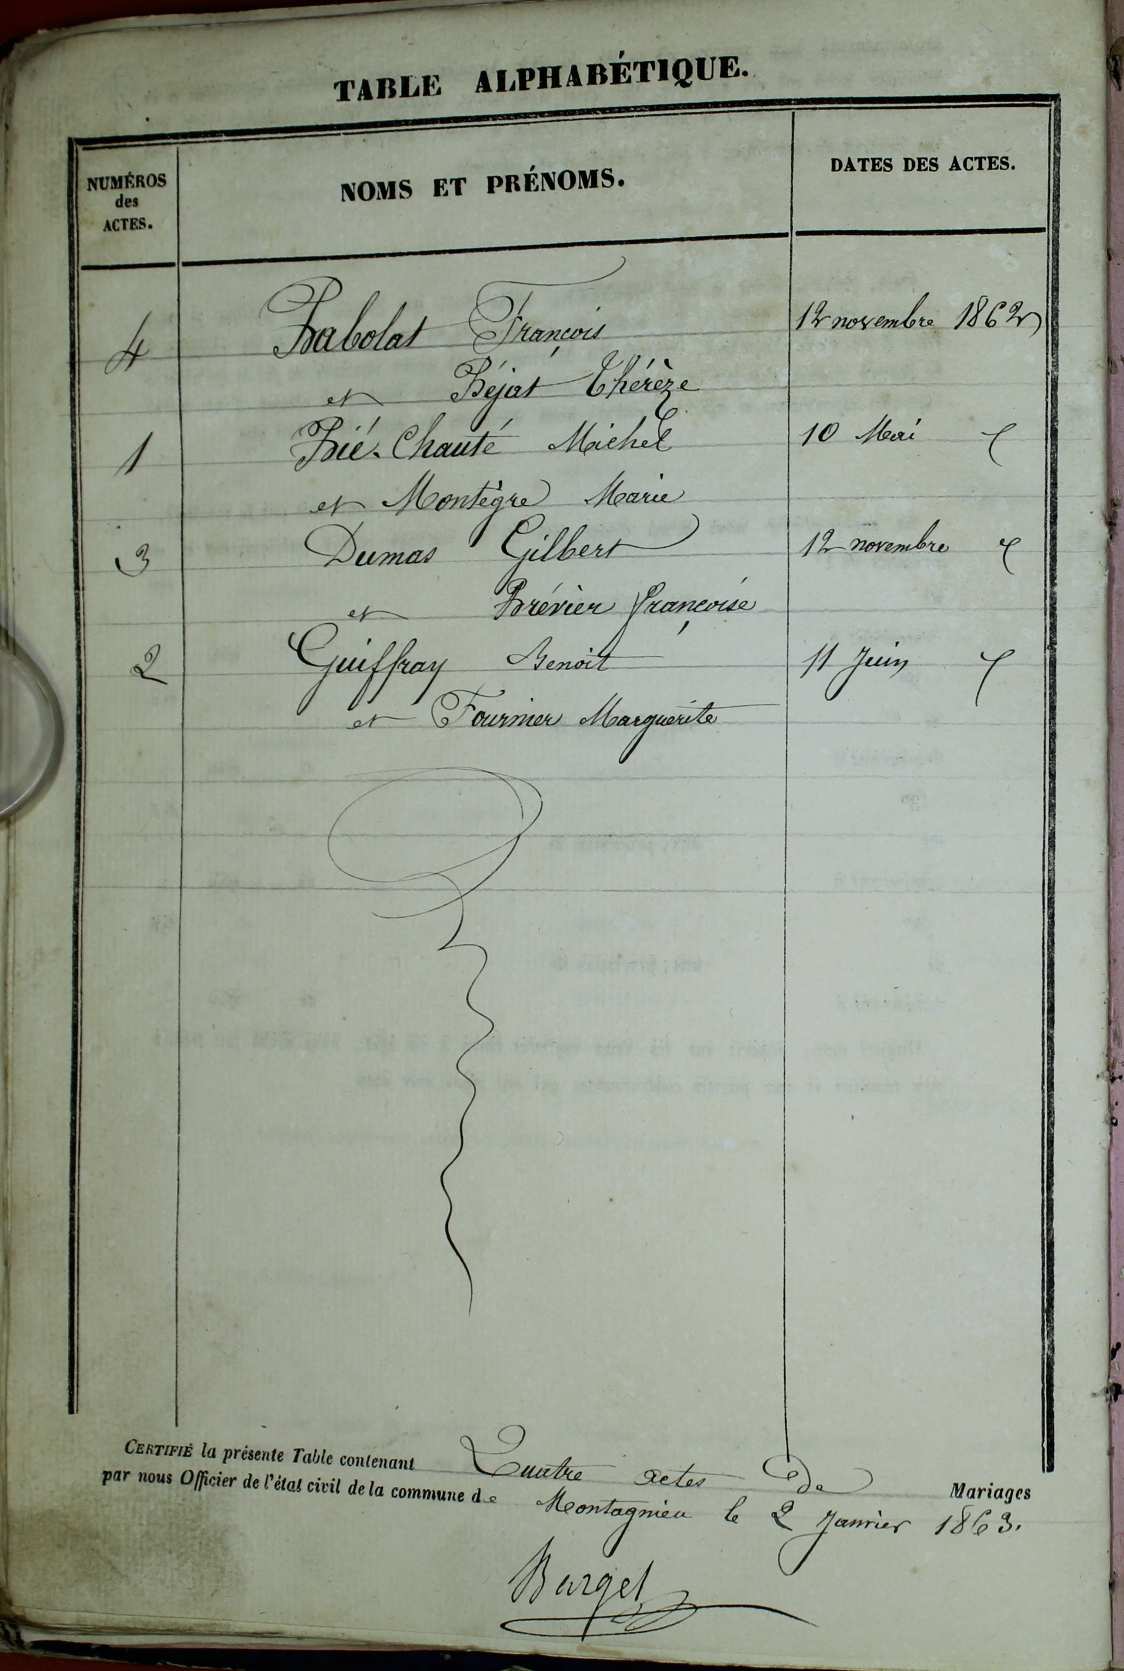 TABLE ALPHABÉTIQUE.
NUMÉROS
des
ACTES.
NOMS ET PRÉNOMS.
DATES DES ACTES.
4 Babolat François 12 novembre 1862
et Béjat Thérèze
1 Bié-Chauté Michel 10 Mai
et Montègre Marie
3 Dumas Gilbert 12 novembre
et Brévier françoise
2 Guiffray Benoit 11 Juin
et Fournier Marguerite
CERTIFIÉ la présente Table contenant Quatre actes de Mariages
par nous Officier de l'état civil de la commune de Montagnieu le 2 Janvier 1863.